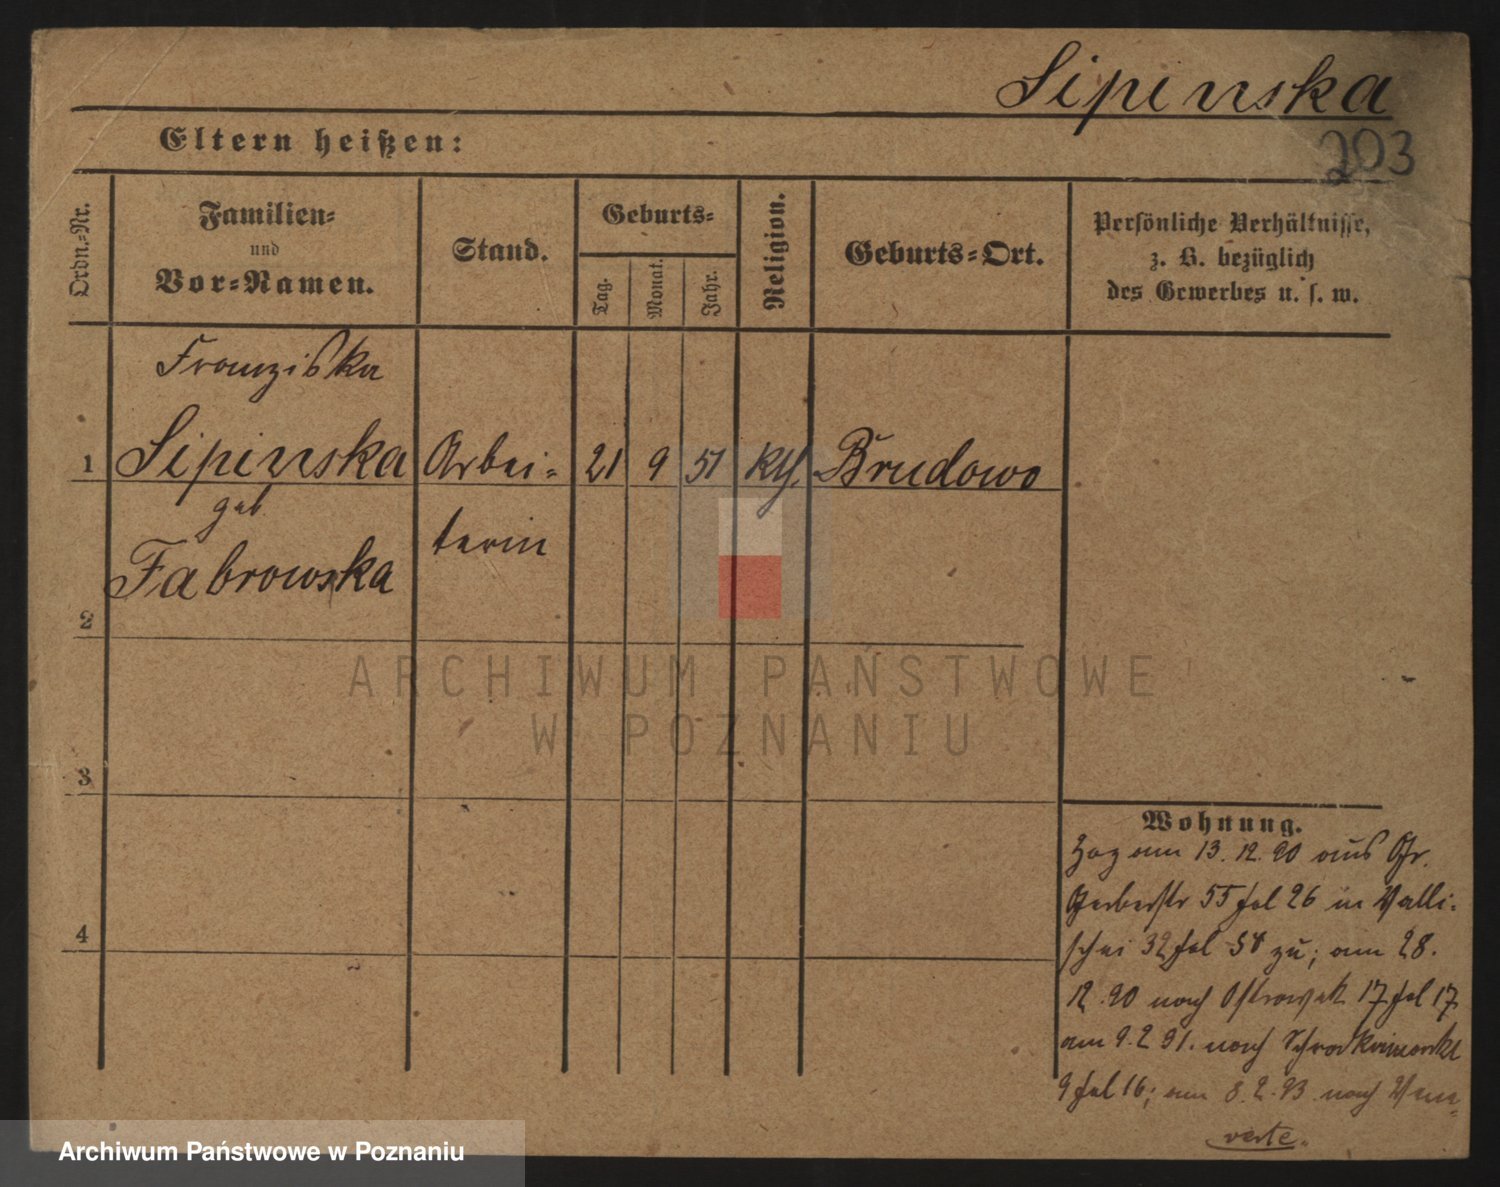 Lipinska
203
Eltern heißen:
Ordn.-Nr.
Familien-
und
Vor-Namen.
Stand.
Geburts-
Tag.
Monat.
Jahr.
Religion.
Geburts-Ort.
Persönliche Verhältnisse,
z. B. bezüglich
des Gewerbes u. s. w.
Franziska
1 Lipinska Arbei- 21 9 51 kth. Brudowo
geb
terin
Fabrowska
2
3
4
Wohnung.
Zog am 13.12.90 aus Gr.
Gerberstr 55 fol 26 in Walli-
schei 32 fol 54 zu; am 28.
12.90 nach Ostrowek 17 fol 17
am 9.2 91. nach Schrodkaimarkt
9 fol 16; am 8.2.93 nach
verte.
ARCHIWUM PAŃSTWOWE
W POZNANIU
Archiwum Państwowe w Poznaniu